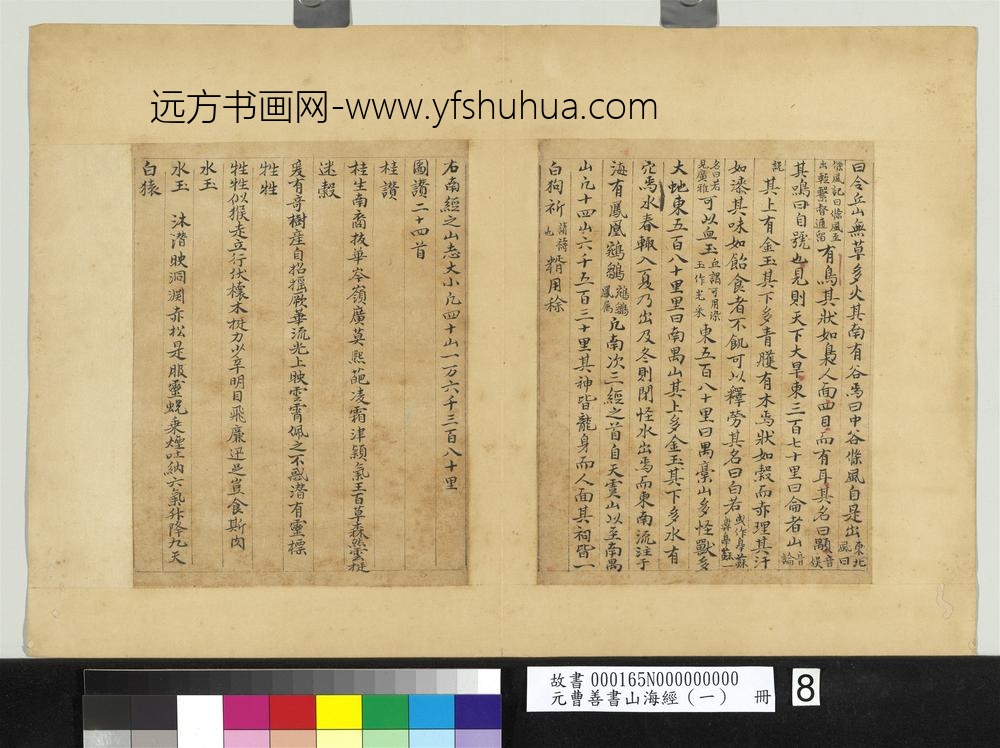 远方书画网-www.yfshuhua.com
曰令丘山無草多火其南有谷焉曰中谷條風自是出東北風曰
條風記曰條風至出輕繫督逋留有鳥其狀如梟人面四目而有耳其名曰顒音娛
其鳴曰自號也見則天下大旱東三百七十里曰侖者山音論
說其上有金玉其下多青雘有木焉狀如榖而赤理其汗
如漆其味如飴食者不飢可以釋勞其名曰白若或作皋蘇皋蘇一
名白若見廣雅可以血玉血謂可用染玉作光采東五百八十里曰禺稾山多怪獸多
大虵東五百八十里里曰南禺山其上多金玉其下多水有
穴焉水春輒入夏乃出及冬則閉怪水出焉而東南流注于
海有鳳凰鵷鶵鵷鶵鳳属凡南次三經之首自天虞山以至南禺
山凡十四山六千五百三十里其神皆龍身而人面其祠皆一
白狗祈請禱也糈用稌
右南經之山志大小凡四十山一万六千三百八十里
圖讚二十四首
桂讚
桂生南裔拔華岑嶺廣莫熙葩凌霜津穎氣王百草森然雲挺
迷榖
爰有奇樹產自招搖厥華流光上映雲霄佩之不惑潛有靈標
狌狌
狌狌似猴走立行伏櫰木挺力少辛明目飛廉迅足豈食斯肉
水玉
水玉沐潛映洞淵赤松是服靈蛻乘煙吐納六氣升降九天
白猿
故書 000165N000000000
元曹善書山海經（一） 冊
8